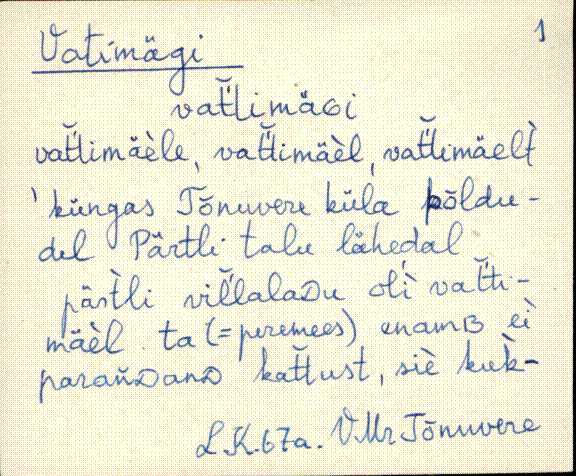 1
Vatimägi
vat̆t̆limäɢi
vat̆t̆limäèle, vat̆t̆imäèl, vat̆t̆imäelt̀
'küngas Tõnuvere küla põldu-
del Pärtli talu lähedal
pärt̀li vil̆l̆alaᴅu olì vat̆t̆i-
mäèl. ta (= peremees) enamʙ eì
paran̆ᴅanᴅ kat̆t̆ust, siè kuk̀-
L.K. 67a. VMr Tõnuvere